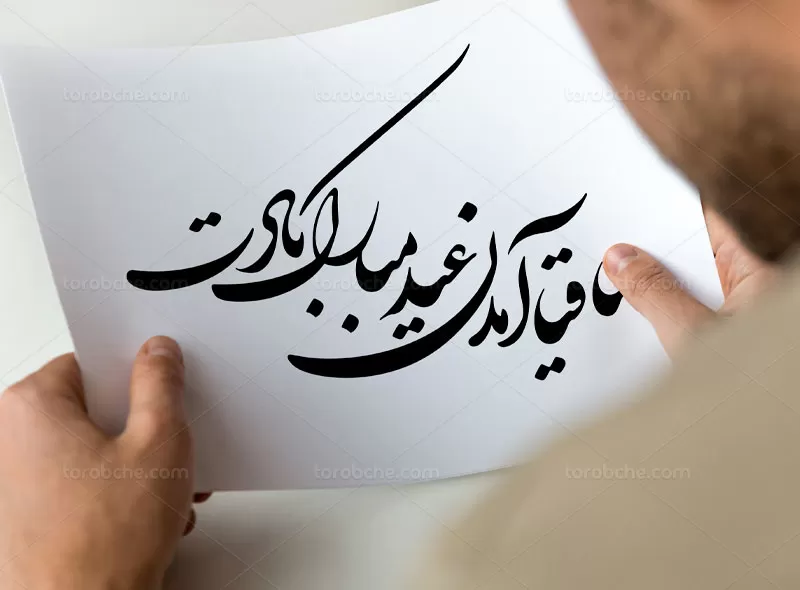 torobche.com torobche.com torobche.com
ساقیا آمدن عید مبارک بادت
torobche.com torobche.com torobche.com
torobche.com torobche.com torobche.com